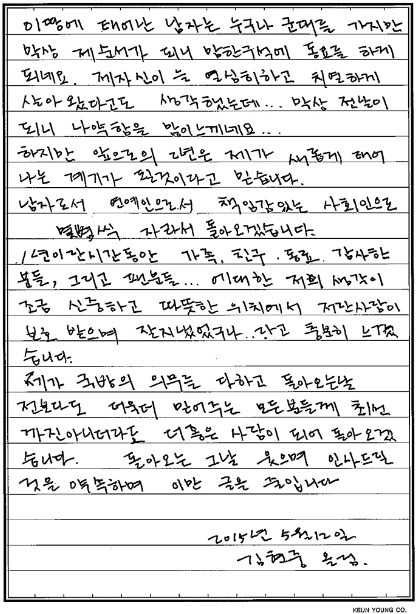 이땅에 태어난 남자는 누구나 군대를 가지만
막상 제순서가 되니 맘한구석에 동요를 하게
되네요. 제자신이 늘 열심히하고 치열하게
살아 왔다고도 생각했는데... 막상 전날이
되니 나약함을 많이느끼네요...
하지만 앞으로의 2년은 제가 새롭게 태어
나는 계기가 될것이라고 믿습니다.
남자로서 연예인으로서 책임감있는 사회인으로
별별씩 자라서 돌아오겠습니다.
1년이란시간동안 가족, 친구. 동료. 감사한
분들, 그리고 팬분들... 에대한 저희 생각이
조금 신중하고 따뜻한 위치에서 저란사람이
보호 받으며 잘지냈었구나..라고 충분히 느꼈
습니다.
제가 국방의 의무를 다하고 돌아오는날
전보다도 더욱더 믿어주는 모든분들께 최선
까진아니더라도 더좋은 사람이 되어 돌아오겠
습니다. 돌아오는 그날 웃으며 인사드릴
것을 약속하며 이만 글을 줄입니다
2015년 5월12일
김현중 올림.
KEUN YOUNG CO.